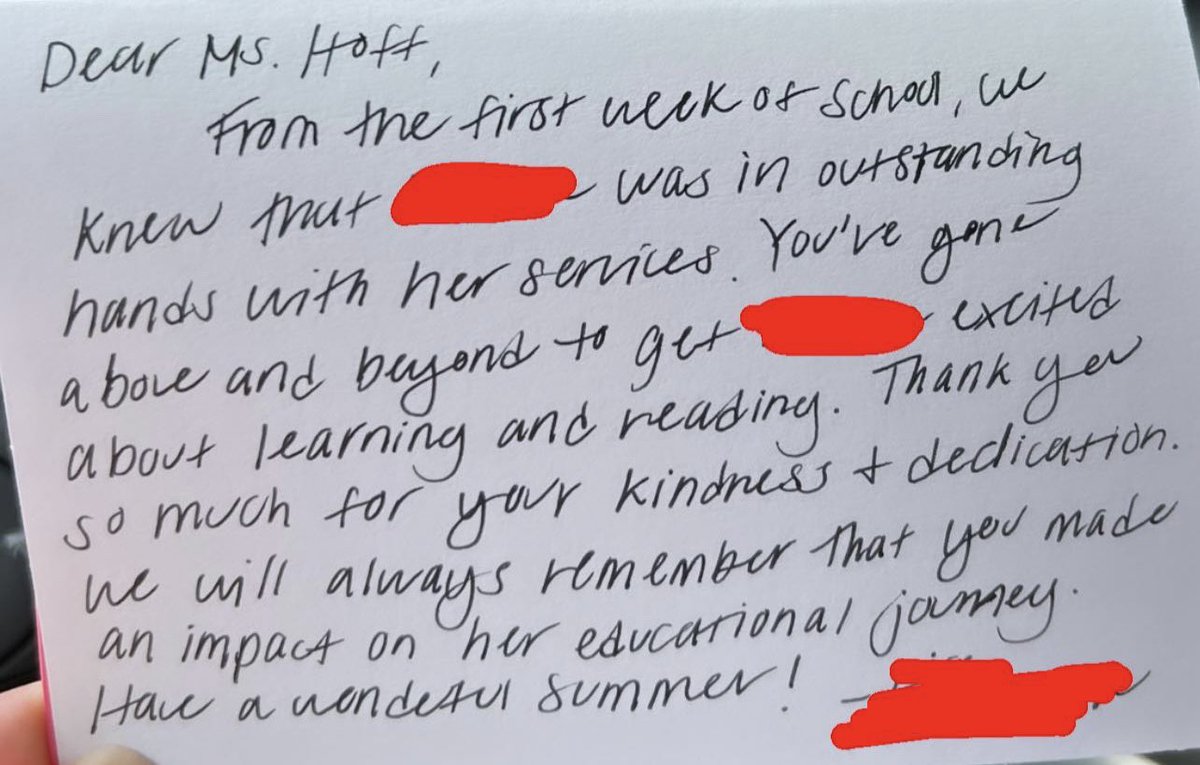 Dear Ms. Hoff,
From the first week of school, we
knew that was in outstanding
hands with her services. You've gone
above and beyond to get excited
about learning and reading. Thank you
so much for your kindness + dedication.
We will always remember that you made
an impact on her educational journey.
Have a wonderful summer!